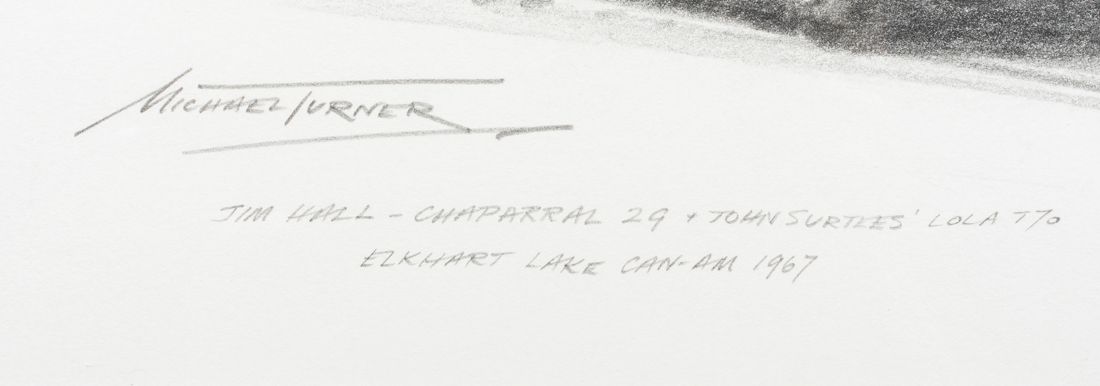 MICHAEL TURNER
JIM HALL - CHAPARRAL 2G + JOHN SURTEES' LOLA T70
ELKHART LAKE CAN-AM 1967